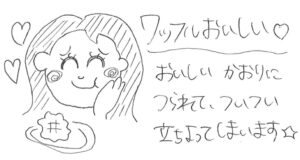 ワッフルおいしい♡
おいしい かおりに
つられて、ついつい
立ちよってしまいます☆